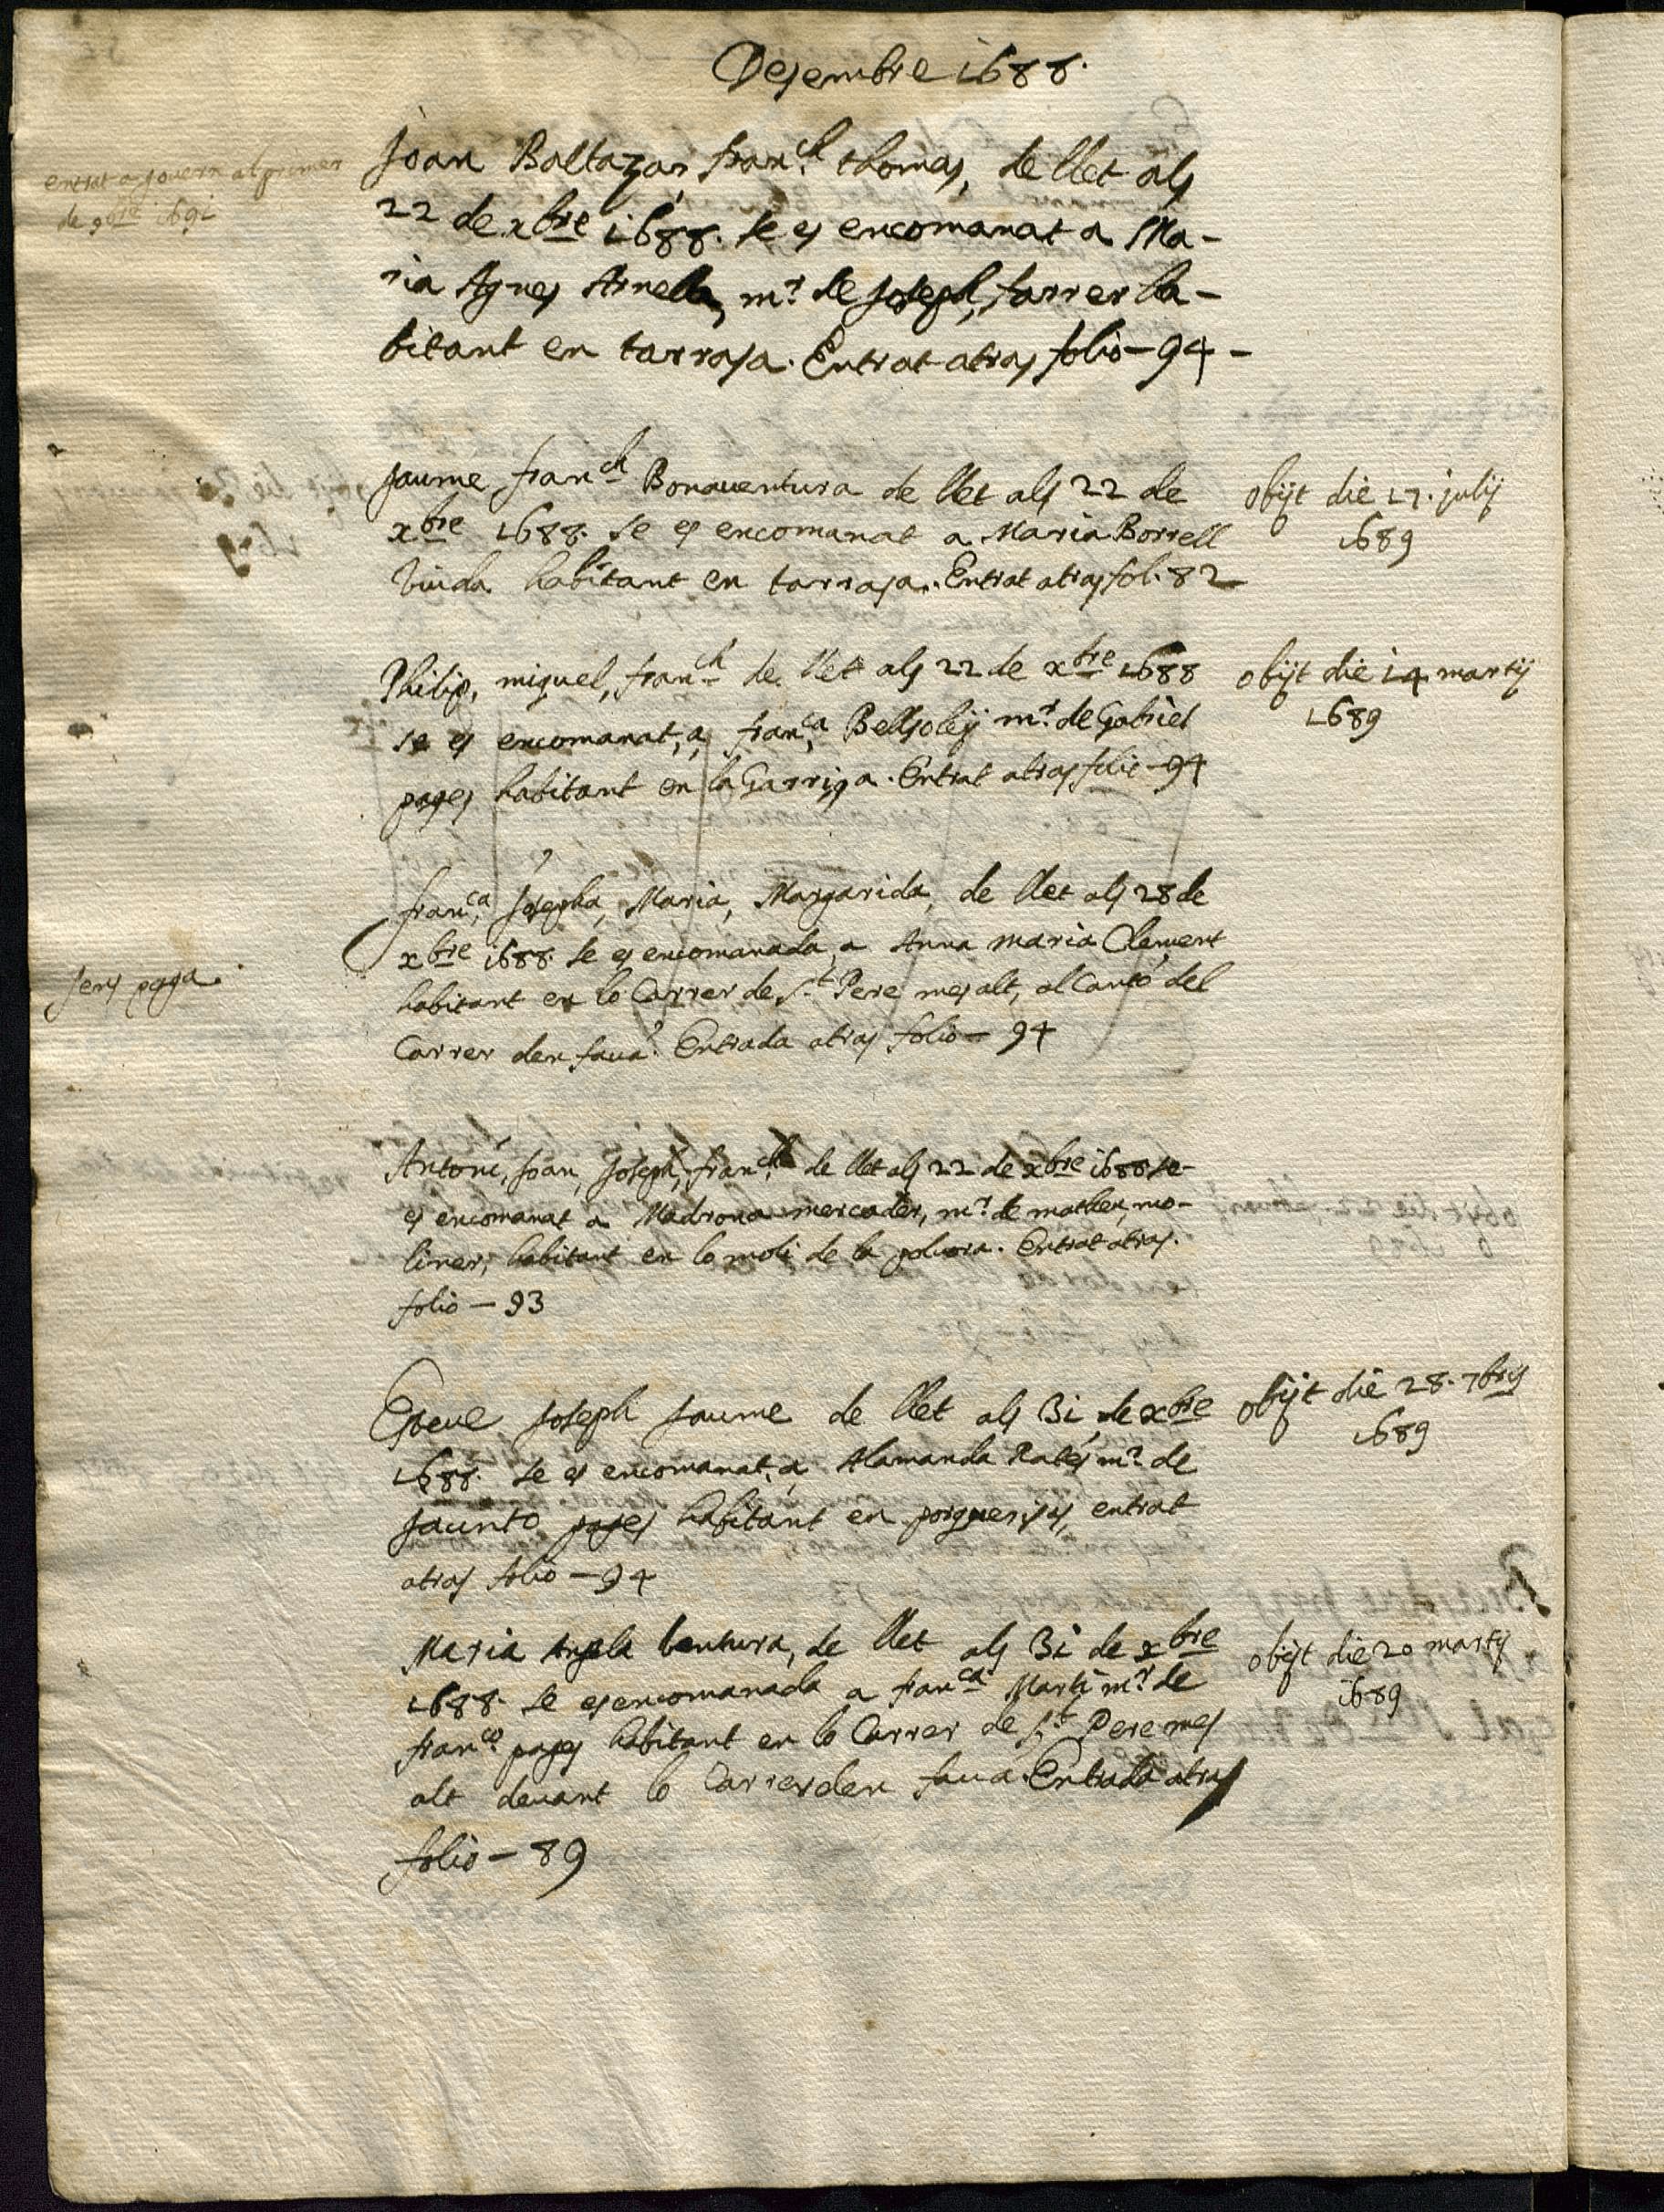 Desembre 1688.
entrat a jovern al primer
de 9bre 1691
Joan Baltazar, franch thomas, de llet als
22 de xbre 1688. se es encomanat a Ma-
ria Agnes Arnella, mr. de Joseph, farrer ha-
bitant en tarrasa. Entrat atras folio - 94 -
Jaume franch Bonaventura de llet als 22 de
xbre 1688. se es encomanat a Maria Borrell
viuda habitant en tarrasa. Entrat atras fol. 82
obijt die 17. julij
1689
Philip, miquel, franch de llet als 22 de xbre 1688
se es encomanat, a, franca Bellsoleij mr. de Gabriel
pages habitant en la Garriga. Entrat atras folio - 94
obijt die 14 martij
1689
franca, Josepha, Maria, Margarida, de llet als 28 de
xbre 1688. se es encomanada, a Anna maria Clement
habitant en lo Carrer de St Pere mes alt, al Cantó del
Carrer den fauá. Entrada atras folio - 94
sens paga.
Antoni, Joan, Joseph, franch de llet als 22 de xbre 1688 se
es encomanat a Madrona mercader, mr. de matheu, mo-
liner, habitant en lo moli de la poluora. Entrat atras.
folio - 93
Esteue Joseph Jaume de llet als 31 de xbre
1688. se es encomanat, a, Alamanda Rates mr. de
Jacinto pages habitant en porquerisas, entrat
atras folio - 94
obijt die 28. 7bris
1689
Maria Angela bentura, de llet als 31 de xbre
1688. se es encomanada a franca Marti mr. de
franco. pages habitant en lo Carrer de St Pere mes
alt deuant lo Carrer den faua. Entrada atras
folio - 89
obijt die 20 martij
1689